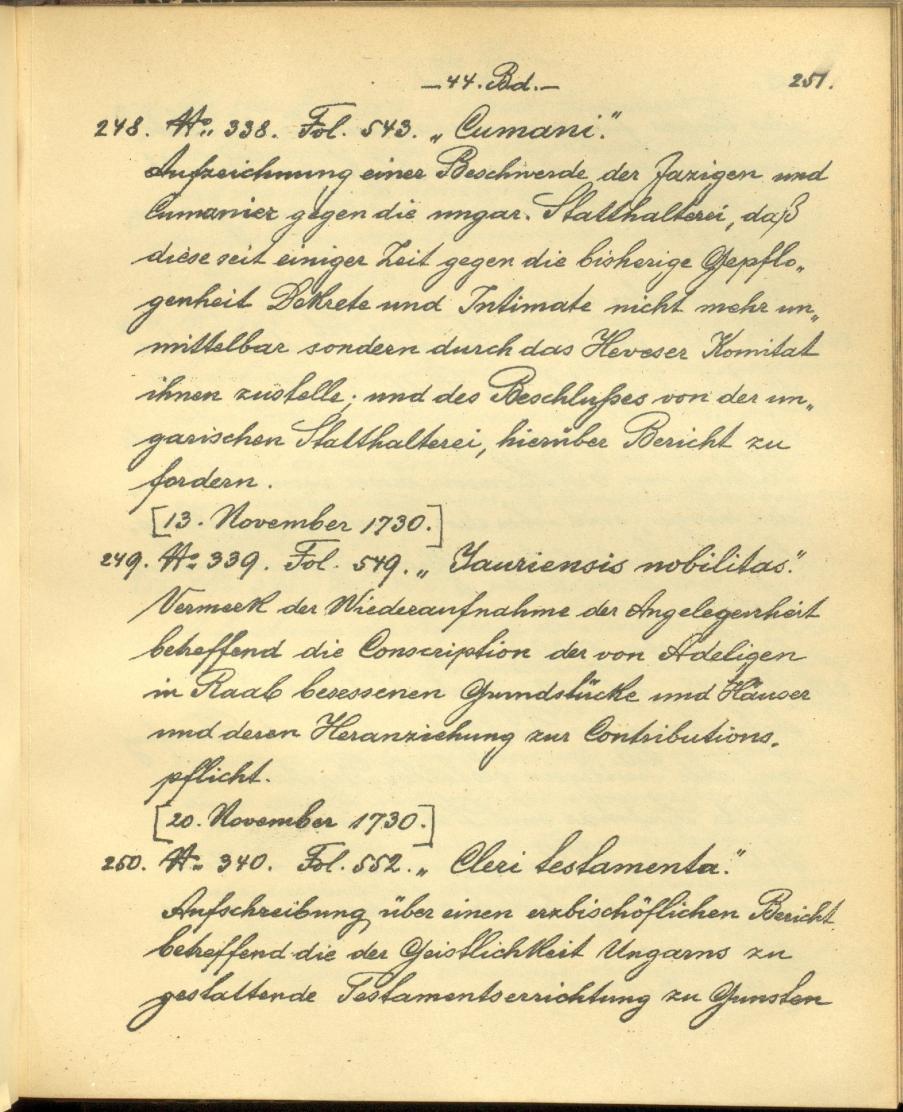 —44. Bd.—
251.
248. No. 338. Fol. 543. „Cumani."
Aufzeichnung einer Beschwerde der Jazigen und
Cumanier gegen die ungar. Statthalterei, daß
diese seit einiger Zeit gegen die bisherige Gepflo„
genheit Dekrete und Intimate nicht mehr un„
mittelbar sondern durch das Heveser Komitat
ihnen zustelle; und des Beschlußes von der un„
garischen Statthalterei, hierüber Bericht zu
fordern.
[13. November 1730.]
249. No. 339. Fol. 549. „Jauriensis nobilitas."
Vermerk der Wiederaufnahme der Angelegenheit
betreffend die Conscription der von Adeligen
in Raab besessenen Grundstücke und Häuser
und deren Heranziehung zur Contributions-
pflicht.
[20. November 1730.]
250. No. 340. Fol. 552. „Cleri testamenta."
Aufschreibung über einen erzbischöflichen Bericht
betreffend die der Geistlichkeit Ungarns zu
gestattende Testamentserrichtung zu Gunsten